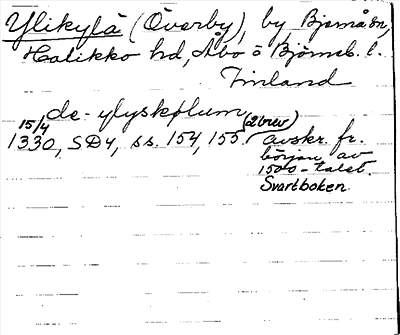 Ylikylä (Överby), by Bjernå sn,
Halikko hd, Åbo o Björneb. l.
Finland
de ylyskylum (2 brev)
15/4
1330, SD4, ss. 154, 155. avskr. fr.
början av
1500-talet.
Svartboken.